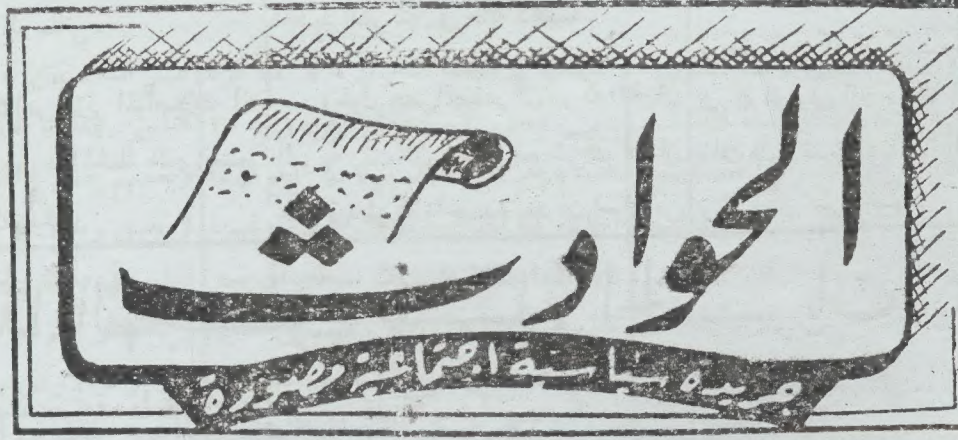 الحوادث
جريدة سياسية اجتماعية مصورة